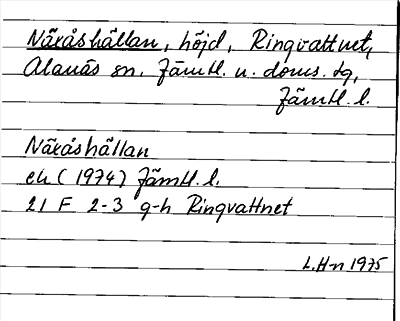 Näråshållan, höjd, Ringvattnet,
Alanäs sn. Jämtl. n. doms. tg,
Jämtl. l.
Näråshållan
ek (1974) Jämtl. l.
21 F 2-3 g-h Ringvattnet
L.H-n 1975